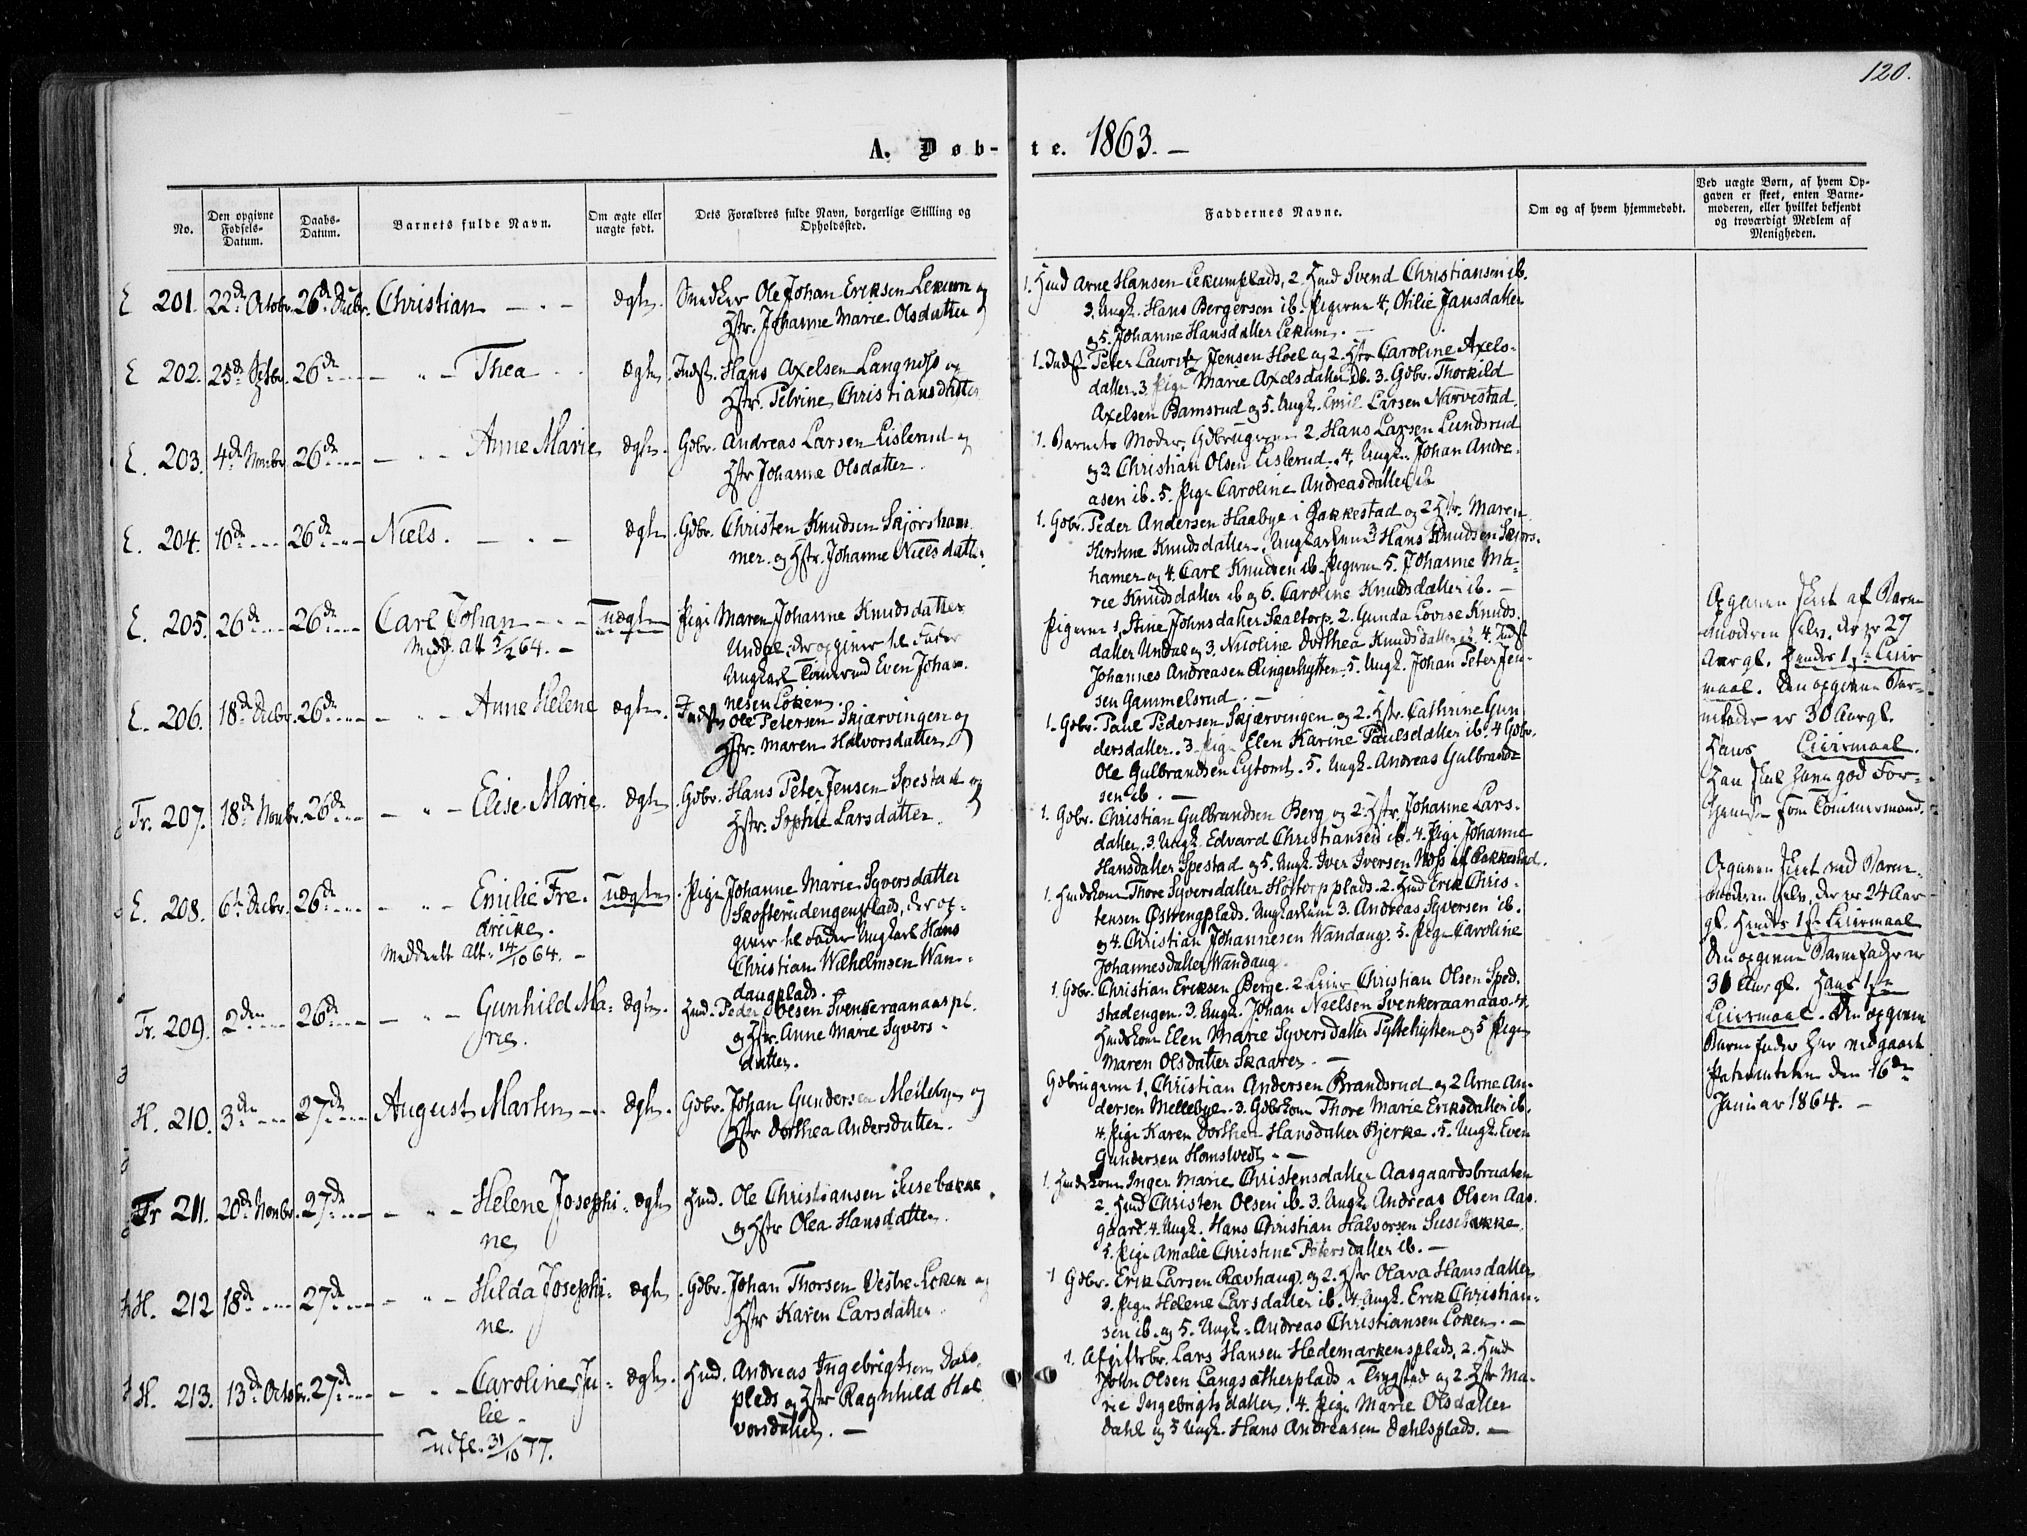 120.
A. Døb-te. 1863. —
No.
Den opgivne Fødsels-Datum.
Daabs-Datum.
Barnets fulde Navn.
Om ægte eller uægte født.
Dets Forældres fulde Navn, borgerlige Stilling og Opholdssted.
Faddernes Navne.
Om og af hvem hjemmedøbt.
Ved uægte Børn, af hvem Opgaven er skeet, enten Barnemoderen, eller hvilket bekjendt og troværdigt Medlem af Menigheden.
E 201. 22de Octobr. 26de Decbr. Christian — . — ægte.
Ole Johan Eriksen Lekum og
Hstr. Johanne Marie Olsdatter
1. Hmd Arne Hansen Lekumplads, 2. Hmd Svend Christiansen ib.
3. Ungk. Hans Bergersen ib. Pigerne 4, Otilie Jansdatter
og 5. Johanne Hansdatter Lekum. —
E 202. 25de 26de — " — Thea ægte. Indst. Hans Axelsen Langnæs og
Hstr. Petrine Christiansdatter
1. Indst Peter Lawritz Jensen Hoel og 2. Hstr Caroline Axels-
datter. 3 Pige Marie Axelsdatter ib. 3. Gdbr. Thorkild
Axelsen Bamsrud og 5. Ungk. Emil Larsen Narvestad.
E. 203. 4de Novbr. 26de — " — Anne Marie ægte. Gdbr. Andreas Larsen Lislerud og
Hstr Johanne Olsdatter.
1. Barnets Moder, Gdbrugerne 2. Hans Larsen Lundsrud
og 3. Christian Olsen Lislerud. 4. Ungk. Johan Andre-
asen ib. 5. Pige Caroline Andreasdatter ib
E. 204. 10de 26de Niels. — . — ægte Gdbr. Christen Knudsen Skjørsham
mer. og Hstr. Johanne Nielsdatter.
1. Gdbr. Peder Andersen Haabye i Rakkestad og 2 Hstr. Maren
Kerstine Knudsdatter. Ungkarlene 3 Hans Knudsen Skjørs-
hamer og 4. Carl Knudsen ib. Pigerne 5. Johanne Ma-
rie Knudsdatter ib og 6. Caroline Knudsdatter ib. —
E. 205. 26de 26de Carl Johan — — uægte Pige Maren Johanne Knudsdatter
Medd. Att 64. —
Undal, der opgiver til Fader
Ungkarl Tømmermd Even Johan-
nesen Løken.
Pigerne 1, Stine Johnsdatter Skaltorp, 2. Gunda Lovise Knuds-
datter Undal og 3. Nicoline Dorthea Knudsdatter ib. 4. Indst
Johannes Andreasen Ringerhytten. 5. Ungk. Johan Peter Jen-
sen Gammelsrud. —
Opgaven skeet af Barne
moderen selv, der er 27
Aar gl. hendes 1ste Leier
maal. Den opgivne Bar-
nefader er 30 Aar gl.
Hans Leiermaal.
Han skal have god For-
tjeneste som Tømmermand.
E. 206. 18de Decbr. 26de — " — Anne Helene ægte. Indst Ole Petersen Skjærvingen og
Hstr. Maren Halvorsdatter
1. Gdbr. Paul Pedersen Skjærvingen og 2. Hstr. Cathrine Gun
dersdatter. 3. Pige Elen Karine Paulsdatter ib. 4 Gdbr.
Ole Gulbrandsen Lytomt. 5. Ungk. Andreas Gulbrand-
sen ib. —
Tr. 207. 18de Novbr. 26de — " — Elise Marie. ægte Gdbr. Hans Peter Jensen Spestad og
Hstr. Sophie Larsdatter.
1. Gdbr. Christian Gulbrandsen Berg og 2. Hstr. Johanne Lars-
datter. 3. Ungk. Edvard Christiansen ib. 4. Pige Johanne
Hansdatter Spestad og 5. Ungk. Iver Iversen Næss af Rakkestad.
E. 208. 6te Decbr. 26de — " — Emilie Fre-
dricke.
Meddeelt Att. 14/10 64. —
uægte. Pige Johanne Marie Syversdatter
Skofterudengenplads, der op-
giver til Fader Ungkarl Hans
Christian Wilhelmsen Wan-
daugplads.
1. Huuskone Thore Syversdatter Hostorpplads. 2. Hmd Erik Chris-
tensen Østrengplads. Ungkarlene 3. Andreas Syversen ib.
og 4. Christian Johannesen Wandaug. 5. Pige Caroline
Johannesdatter Wandaug.
Opgaven skeet med Barne-
moderen selv, der er 24 Aar
gl. Hendes 1ste Leiermaal
Den opgivne Barnefader er
31 Aar gl. Hans 1ste
Leiermaal. Den opgivne
Barnefader har vedgaaet
Paterniteten den 16de
Januar 1864. —
Tr. 209. 2den 26de — " — Gunhild Ma-
rie.
ægte. Hmd. Peder Olsen Svenkeraanaaspl.
og Hstr. Anne Marie Syvers-
datter.
1. Gdbr. Christian Eriksen Berge. 2 Leier Christian Olsen Sped-
stadengen. 3. Ungk. Johan Nielsen Svenkeraanaas. 4.
Huuskone Elen Marie Syversdatter Pyttehytten og 5 Pige
Maren Olsdatter Skaaren. —
H. 210. 3die 27de August Martin — ægte. Gdbr. Johan Gundersen Mellebye og
Hstr Dorthea Andersdatter.
Gdbrugerne 1, Christian Andersen Brandsrud og 2 Arne An-
dersen Mellebye. 3. Gdbrkone Thore Marie Eriksdatter ib.
4. Pige Karen Dorthea Hansdatter Bjerke. 5. Ungk. Even
Gundersen Homstvedt. —
Tr 211. 20de Novbr. 27de — " — Helene Josephi-
ne,
ægte Hmd. Ole Christiansen Susebakke
og Hstr Olea Hansdatter.
1. Huuskone Inger Marie Christensdatter Aasgaardsbraaten
2. Hmd Christen Olsen ib. 3. Ungk. Andreas Olsen Aas-
gaard. 4. Ungk. Hans Christian Halvorsen Susebakke.
5. Pige Amalie Christine Petersdatter ib. —
H. 212 18de 27de — " — Hilda Josephi-
ne.
ægte. Gdbr. Johan Thorsen Vestre Løken og
Hstr Karen Larsdatter.
1 Gdbr. Erik Larsen Rævhaug og 2. Hstr Olava Hansdatter
3. Pige Helene Larsdatter ib. 4. Ungk. Erik Christian-
sen ib. og 5. Ungk. Andreas Christiansen Løken. —
H. 213. 13de Octobr. 27de — — Caroline Ju-
lie.
Indfl. 31/10 77.
ægte. Hmd. Andreas Ingebrigtsen Dahls-
plads og Hstr Ragnhild Hal
vorsdatter. —
1. Afgiftsbr. Lars Hansen Hedemarkensplads, 2. Hmd
John Olsen Langsætherplads i Trygstad og 2. Hstr Ma-
rie Ingebrigtsdatter. 4. Pige Marie Olsdatter
Dahl og 5 Ungk. Hans Andreasen Dahlsplads. —